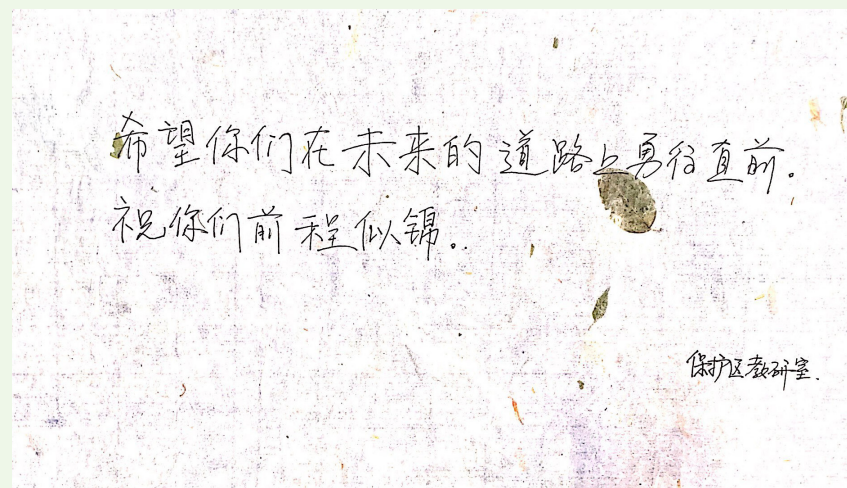 希望你们在未来的道路上勇往直前。
祝你们前程似锦。
保护区教研室.